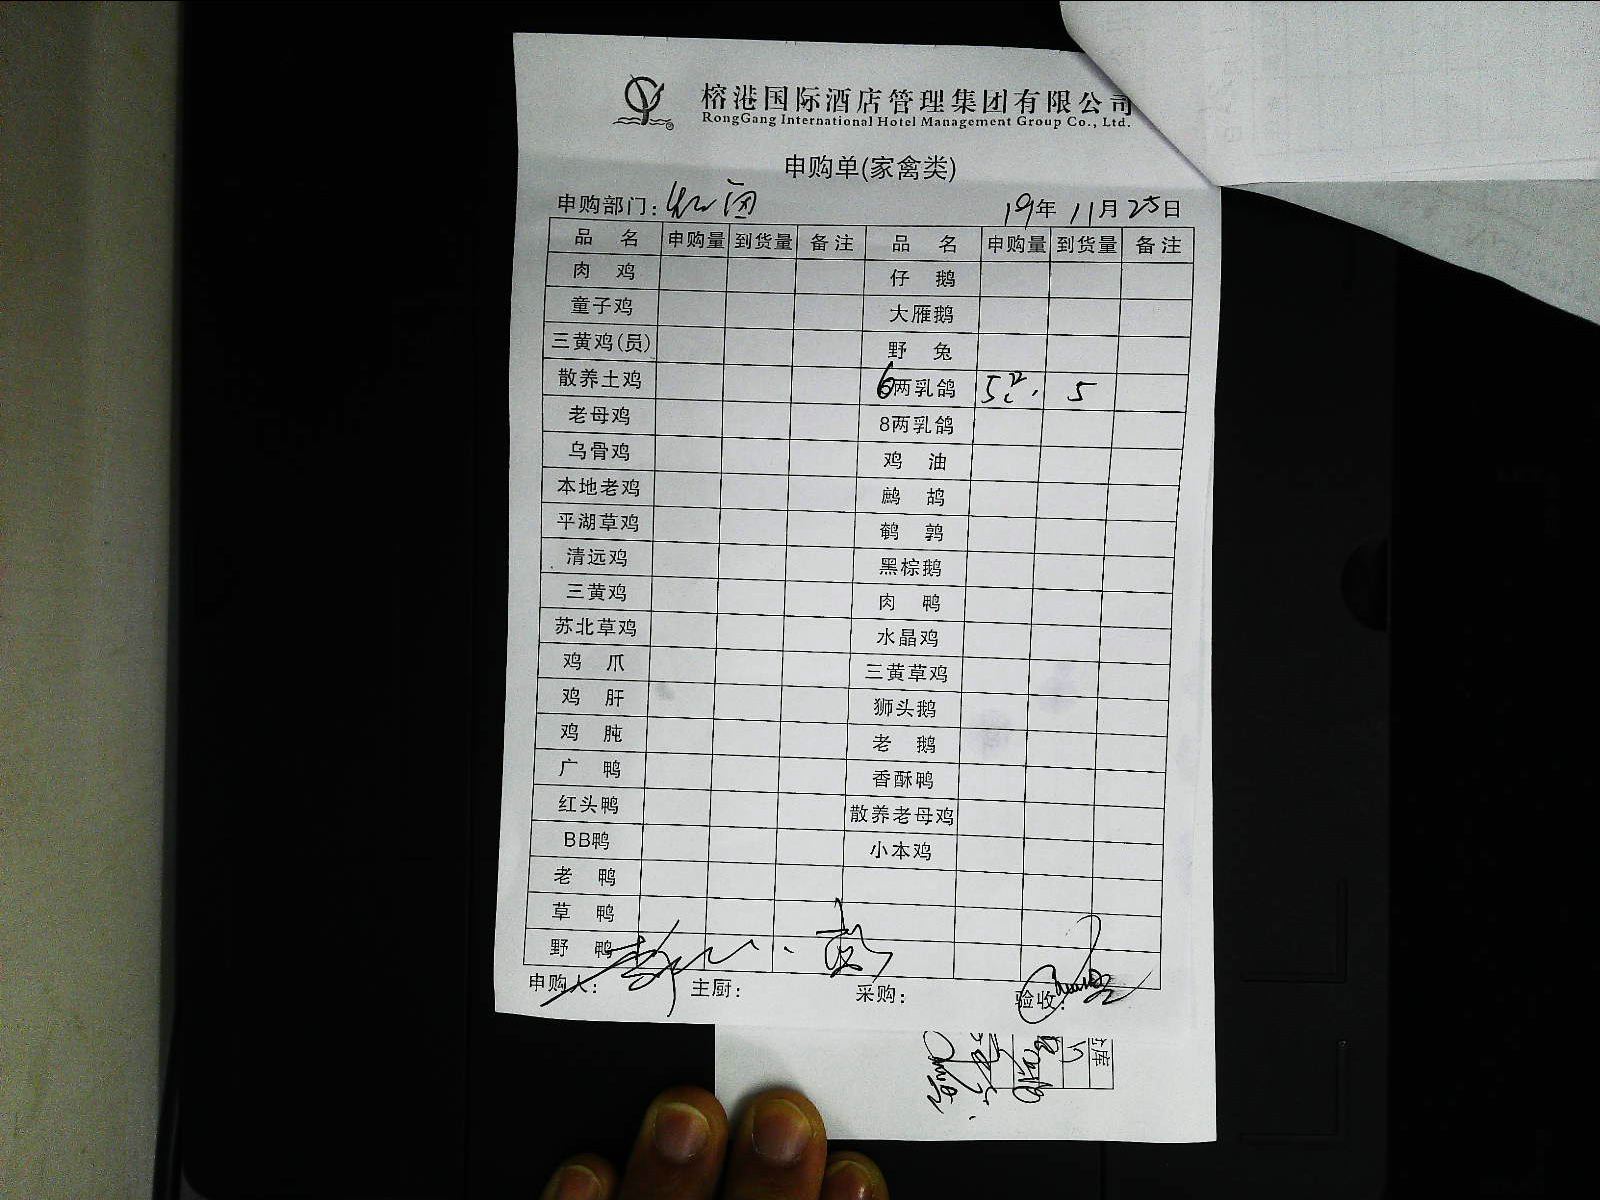 榕港国际酒店管理集团有限公司
RongGang International Hotel Management Group Co., Ltd.
申购单(家禽类)
申购部门: 19年 11月 25日
品 名 申购量 到货量 备注 品 名 申购量 到货量 备注
肉 鸡 仔 鹅
童子鸡 大雁鹅
三黄鸡(员) 野 兔
散养土鸡 6两乳鸽 5 5
老母鸡 8两乳鸽
乌骨鸡 鸡 油
本地老鸡 鹧 鸪
平湖草鸡 鹌 鹑
清远鸡 黑棕鹅
三黄鸡 肉 鸭
苏北草鸡 水晶鸡
鸡 爪 三黄草鸡
鸡 肝 狮头鹅
鸡 肫 老 鹅
广 鸭 香酥鸭
红头鸭 散养老母鸡
BB鸭 小本鸡
老 鸭
草 鸭
野 鸭
申购人: 主厨: 采购: 验收:
库